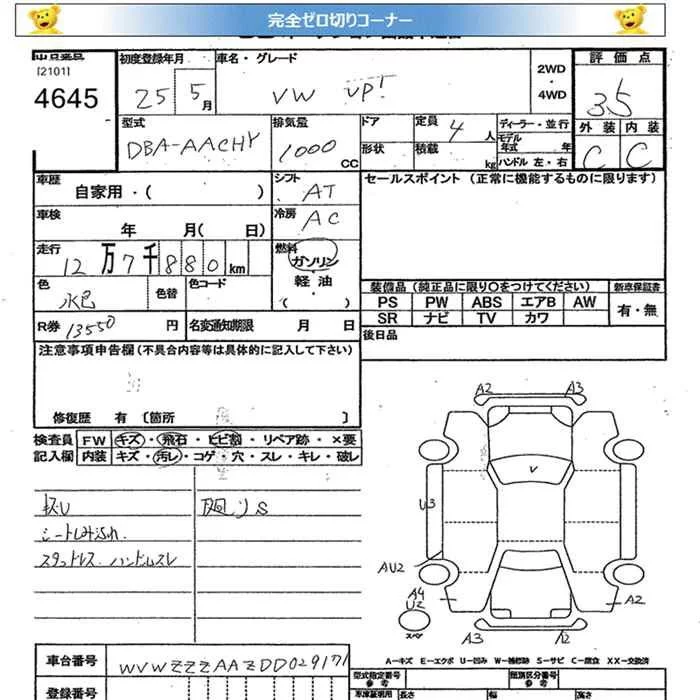 完全ゼロ切りコーナー
[2101]
4645
初度登録年月
25 5月
車名・グレード
VW UP!
2WD
・
4WD
評価点
3.5
外装 内装
C C
型式
DBA-AACHY
排気量
1000 CC
ドア
形状
定員 4 人
積載 kg
ディーラー・並行
モデル年式 年
ハンドル 左・右
車歴
自家用・( )
シフト AT
セールスポイント (正常に機能するものに限ります)
車検
年 月( 日)
冷房 AC
走行
12万7千880km
燃料
ガソリン
・
軽油
・
( )
色
水色
色替
色コード
装備品 (純正品に限り〇をつけてください)
新車保証書
PS PW ABS エアB AW
SR ナビ TV カワ
有・無
R券 13550 円
名変通知期限 月 日
後日品
注意事項申告欄 (不具合内容等は具体的に記入して下さい)
修復歴 有 〔箇所 〕
検査員記入欄
FW キズ・飛石・ヒビ割・リペア跡・×要
内装 キズ・汚レ・コゲ・穴・スレ・キレ・破レ
廻りS
シートしみ
スタッドレス ハンドルスレ
A2 A3
V
U3
AU2
A4
U2
スペア
A2
A3 A2
A-キズ E-エクボ U-凹み W-補修跡 S-サビ C-腐食 XX-交換済
車台番号
WVWZZZAAZDD029171
登録番号
型式指定番号
参考
類別区分番号
参考
車庫証明用
参考
長さ 幅 高さ